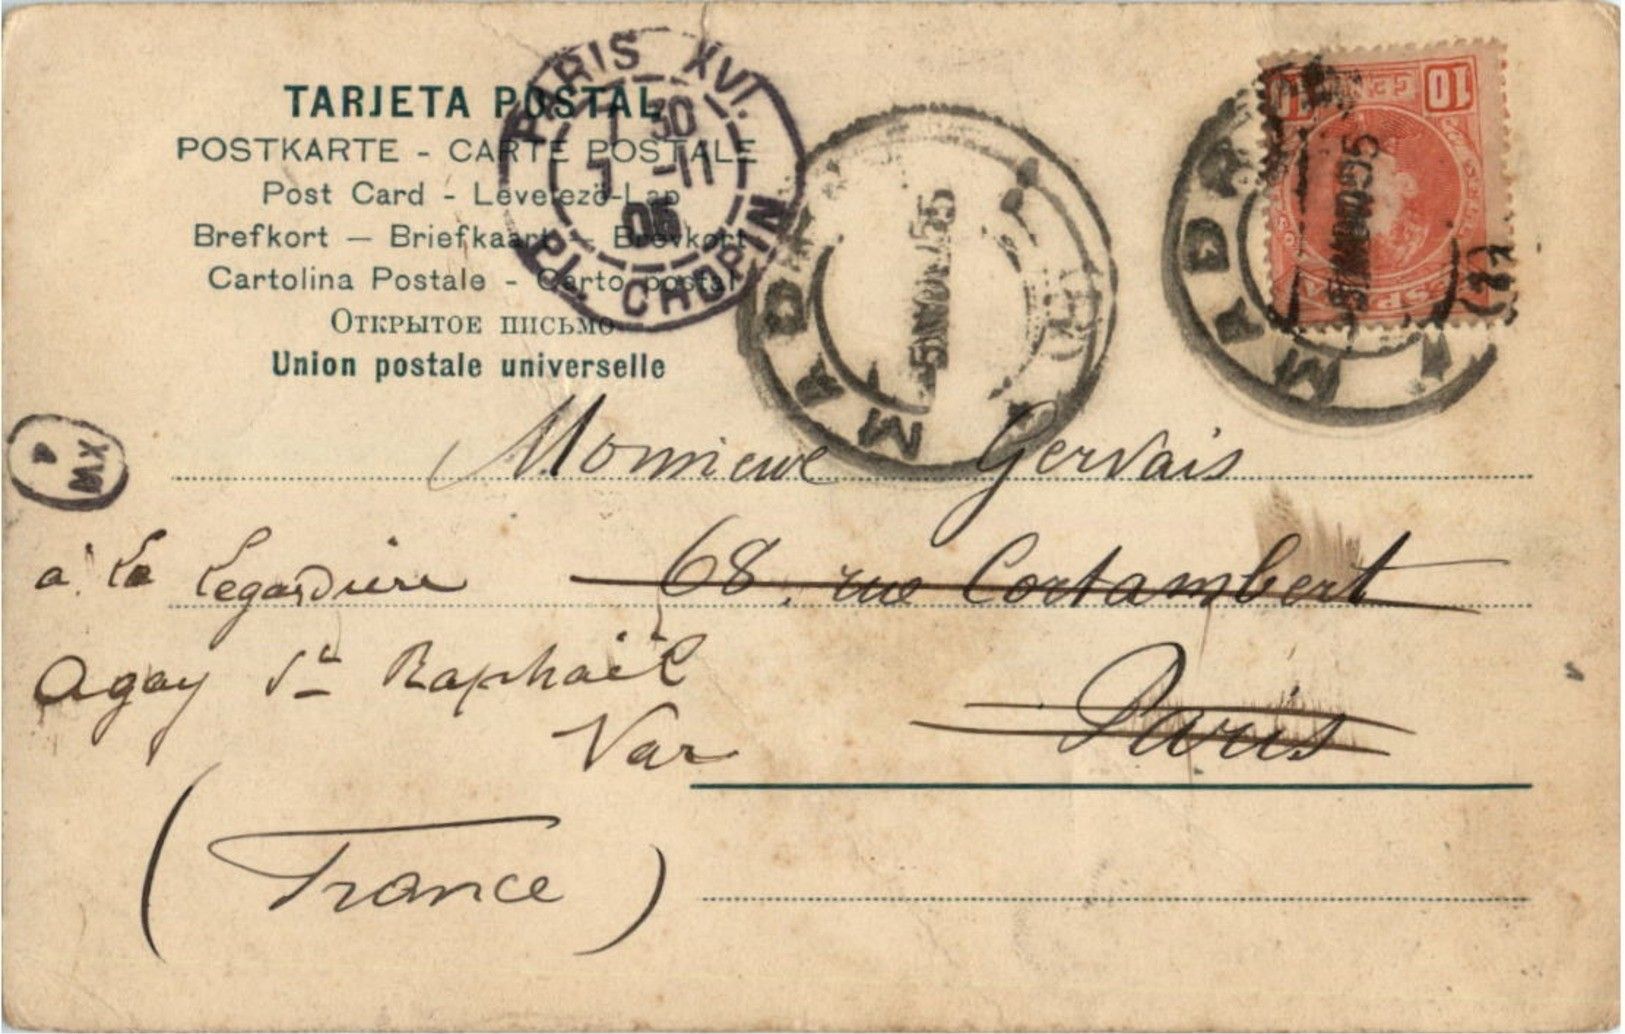 TARJETA POSTAL
POSTKARTE - CARTE POSTALE
Post Card - Levelező-Lap
Brefkort — Briefkaart - Brevkort
Cartolina Postale - Carto postal
Открытое письмо
Union postale universelle
PARIS XVI.
7 30
7 -11
05
PL. CHOPIN
MADRID
5 NOV 05
MADRID
5 NOV 05
10 CENT 10
ESPAÑA
XVI
4
Monsieur Gervais
à La Legardière 68, rue Cortambert
Agay St Raphaël
Var Paris
(France)